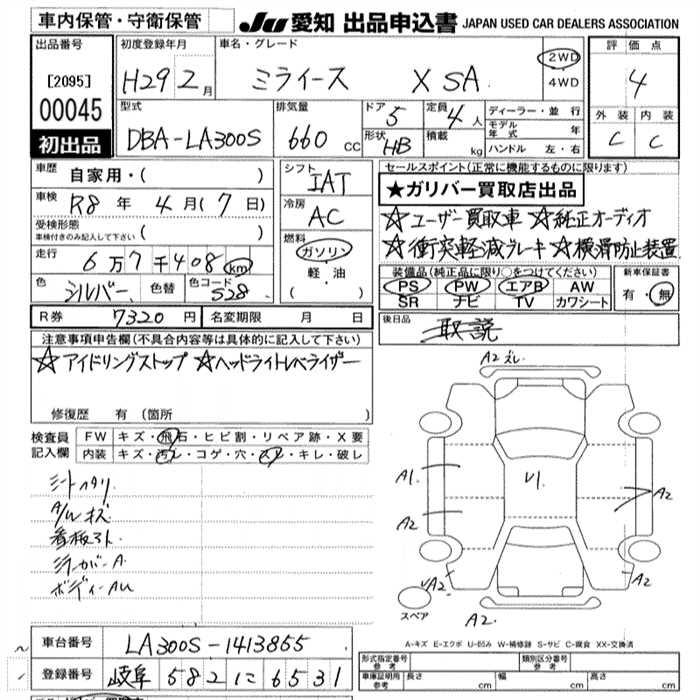 車内保管・守衛保管
JU 愛知 出品申込書 JAPAN USED CAR DEALERS ASSOCIATION
出品番号
[2095]
00045
初出品
初度登録年月
H29 2月
車名・グレード
ミライース X SA
2WD
4WD
評価点
4
外装 内装
C C
型式
DBA-LA300S
排気量
660 CC
ドア
5
形状
HB
定員
4人
積載
kg
ディーラー・並行
モデル年式 年
ハンドル 左・右
車歴
自家用・( )
車検
R8年 4月(7日)
受検形態
車検付きのみ記入して下さい ( )
走行
6万7千408 km
色
シルバー
色替
色コード
S28
シフト
IAT
冷房
AC
燃料
ガソリン
軽・油
( )
セールスポイント(正常に機能するものに限ります)
★ガリバー買取店出品
☆ユーザー買取車 ☆純正オーディオ
☆衝突軽減ブレーキ ☆横滑防止装置
装備品(純正品に限り○をつけてください)
PS PW エアB AW
SR ナビ TV カワシート
新車保証書
有・無
R券
7320円
名変期限 月 日
後日品
取説
注意事項申告欄(不具合内容等は具体的に記入して下さい)
☆アイドリングストップ ☆ヘッドライトレベライザー
修復歴 有(箇所
検査員記入欄
FW キズ・飛石・ヒビ割・リペア跡・X要
内装 キズ・汚レ・コゲ・穴・スレ・キレ・破レ
シートヘタリ
A/Wキズ
看板スト
ミラーカバーA
ボディーAU
A2 ズレ
A1
U1
A2
A2
A2
A2
A2
スペア
A-キズ E-エクボ U-凹み W-補修跡 S-サビ C-腐食 XX-交換済
車台番号
LA300S-1413855
登録番号
岐阜 582 に 6531
形式指定番号
参考
類別区分番号
参考
車庫証明用
参考
長さ cm 幅 cm 高さ cm